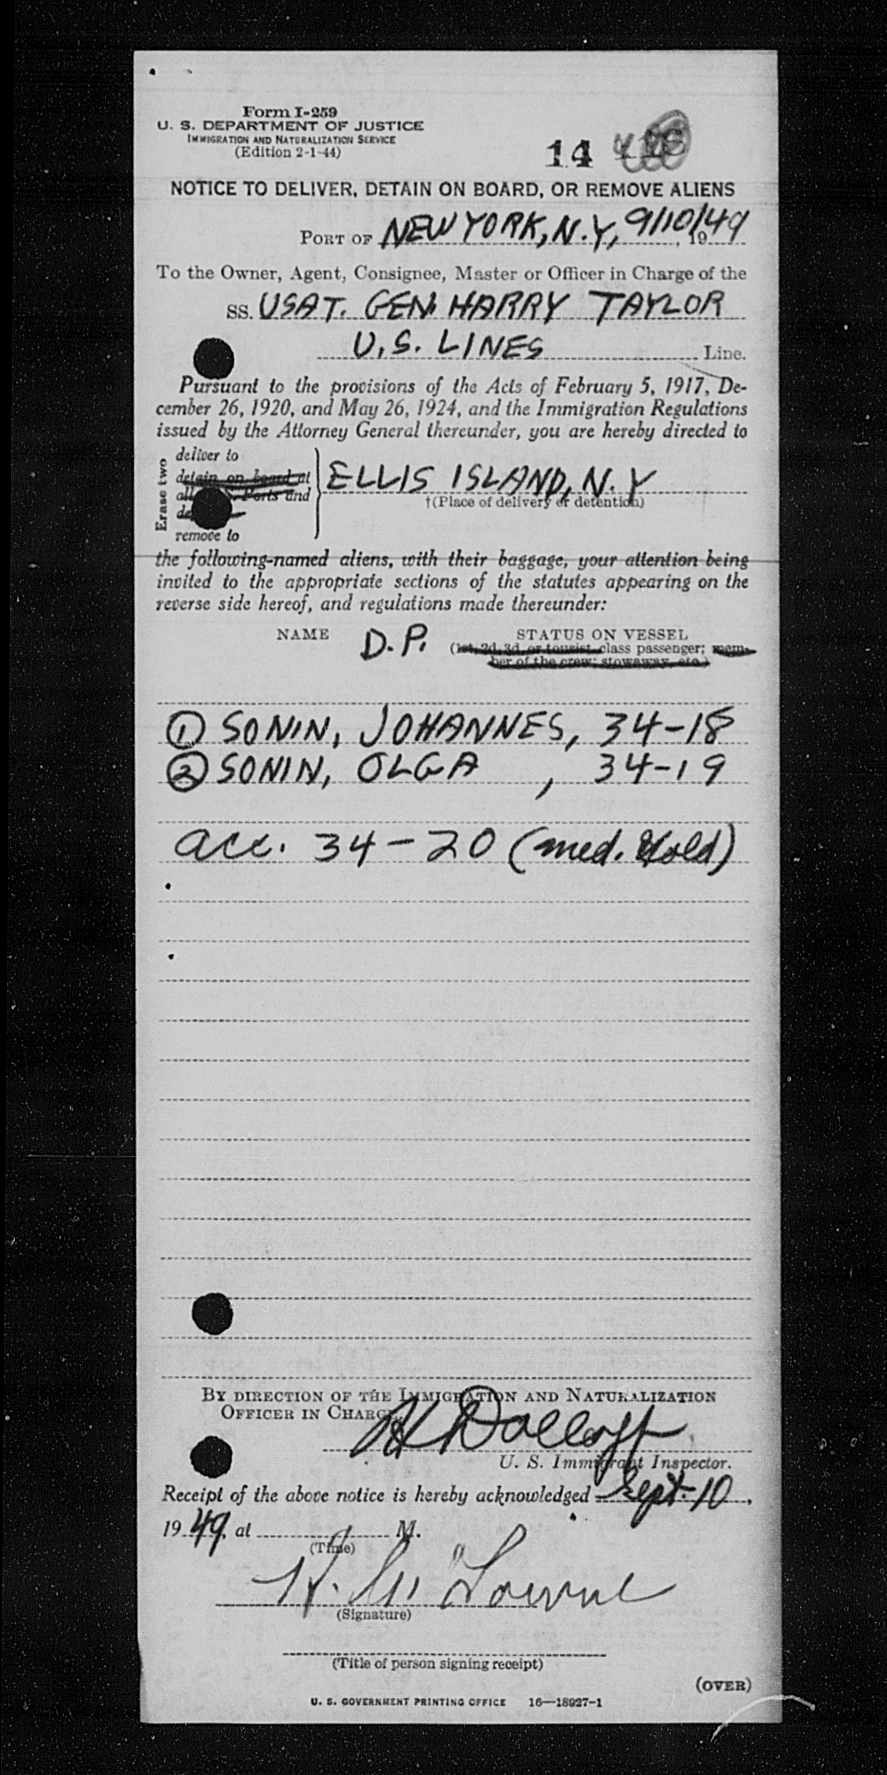 Form I-259
U. S. DEPARTMENT OF JUSTICE
IMMIGRATION AND NATURALIZATION SERVICE
(Edition 2-1-44)
14
NOTICE TO DELIVER, DETAIN ON BOARD, OR REMOVE ALIENS
PORT OF NEW YORK, N.Y, 9/10/49, 19
To the Owner, Agent, Consignee, Master or Officer in Charge of the
SS. USAT. GEN. HARRY TAYLOR
U.S. LINES Line.
Pursuant to the provisions of the Acts of February 5, 1917, De-
cember 26, 1920, and May 26, 1924, and the Immigration Regulations
issued by the Attorney General thereunder, you are hereby directed to
Erase two
deliver to
detain on board at
Ports and
remove to
ELLIS ISLAND, N.Y
†(Place of delivery or detention)
the following-named aliens, with their baggage, your attention being
invited to the appropriate sections of the statutes appearing on the
reverse side hereof, and regulations made thereunder:
NAME D.P. STATUS ON VESSEL
(1st, 2d, 3d, or tourist class passenger; mem-
ber of the crew; stowaway, etc.)
① SONIN, JOHANNES, 34-18
② SONIN, OLGA , 34-19
acc. 34-20 (med. Hold)
BY DIRECTION OF THE IMMIGRATION AND NATURALIZATION
OFFICER IN CHARGE.
U. S. Immigrant Inspector.
Receipt of the above notice is hereby acknowledged Sept. 10,
19 49, at M.
(Time)
(Signature)
(Title of person signing receipt)
(OVER)
U. S. GOVERNMENT PRINTING OFFICE 16—18927-1